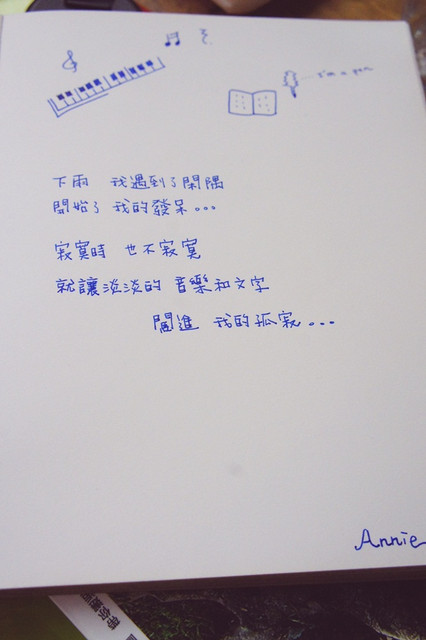 I'm a pen
下雨 我遇到了閑隅
開始了 我的發呆...
寂寞時 也不寂寞
就讓淡淡的 音樂和文字
闖進 我的孤寂...
Annie